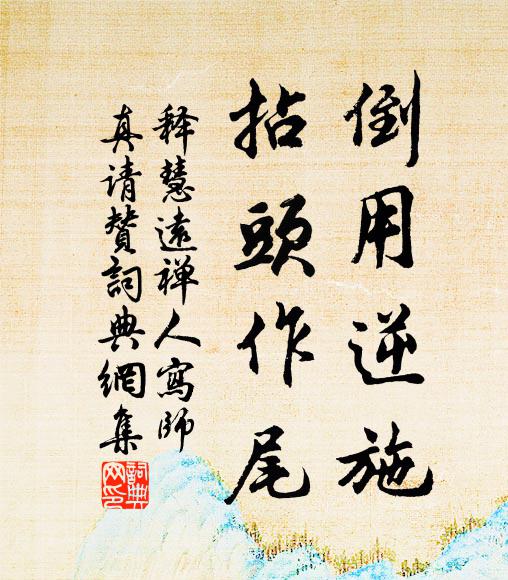 倒用逆施
拈頭作尾
释慧遠禅人寫師
真请賛詞典網集
詞典网印